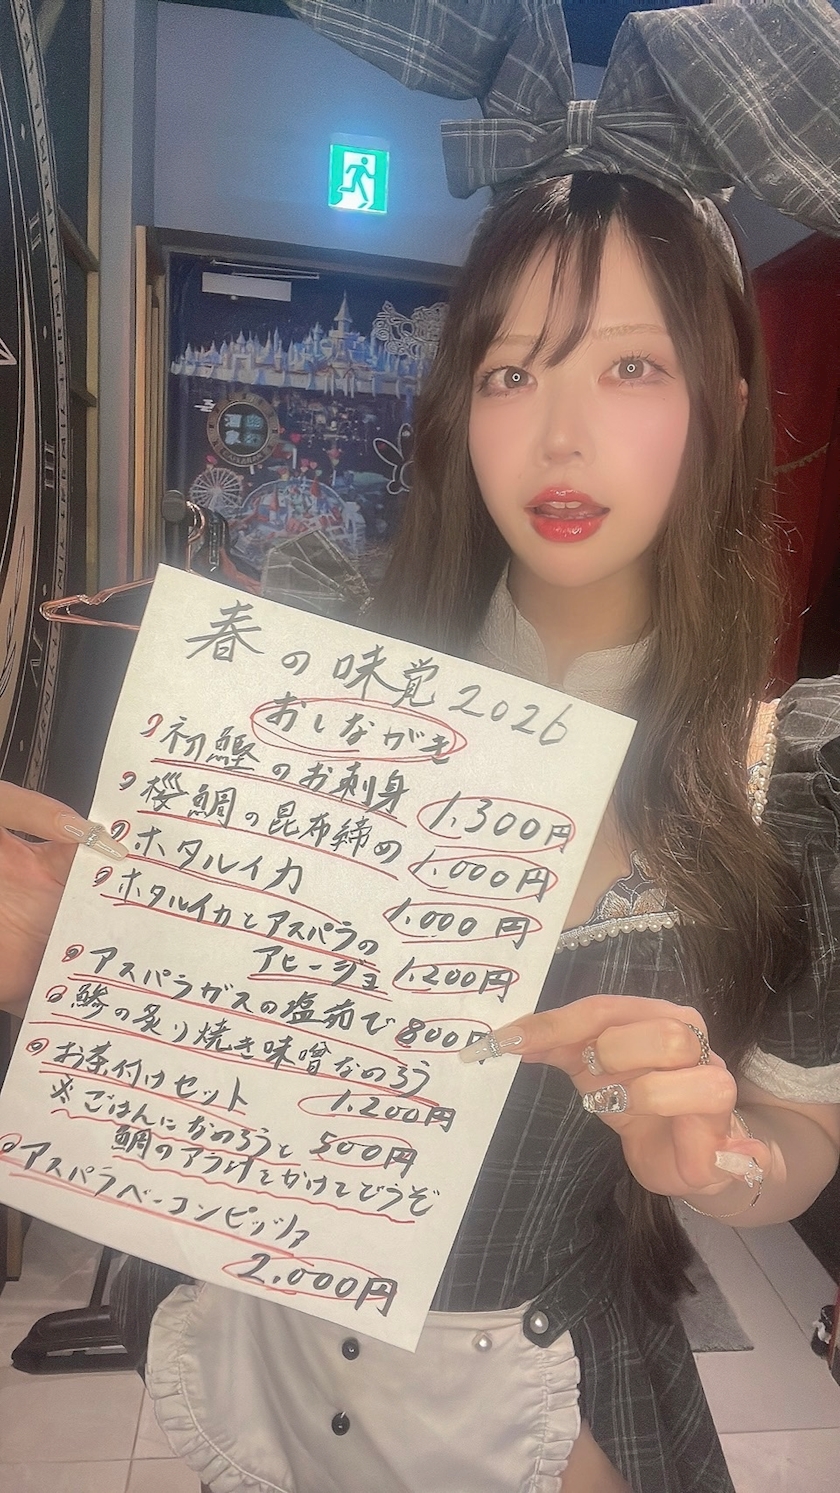 春の味覚2026
おしながき
初鰹のお刺身 1.300円
桜鯛の昆布締め 1.000円
ホタルイカ 1.000円
ホタルイカとアスパラの
アヒージョ 1.200円
アスパラガスの塩茹で 800円
鯵の炙り焼き味噌なめろう
1.200円
お茶付けセット 500円
※ごはんになめろうと
鯛のアラ汁をかけてどうぞ
アスパラベーコンピッツァ
2.000円